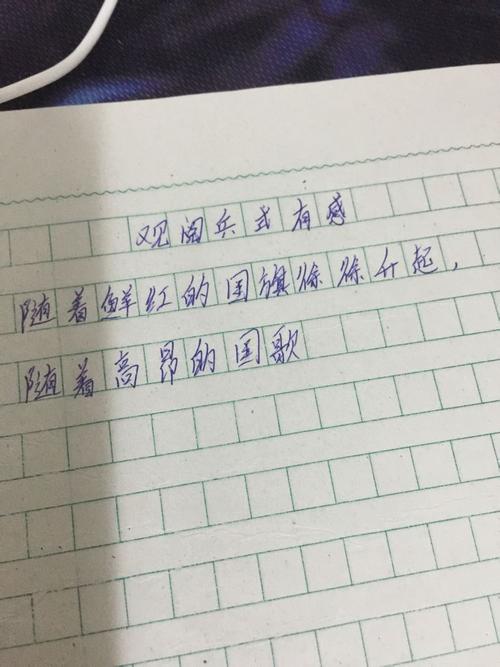 观阅兵式有感
随着鲜红的国旗徐徐升起，
随着高昂的国歌